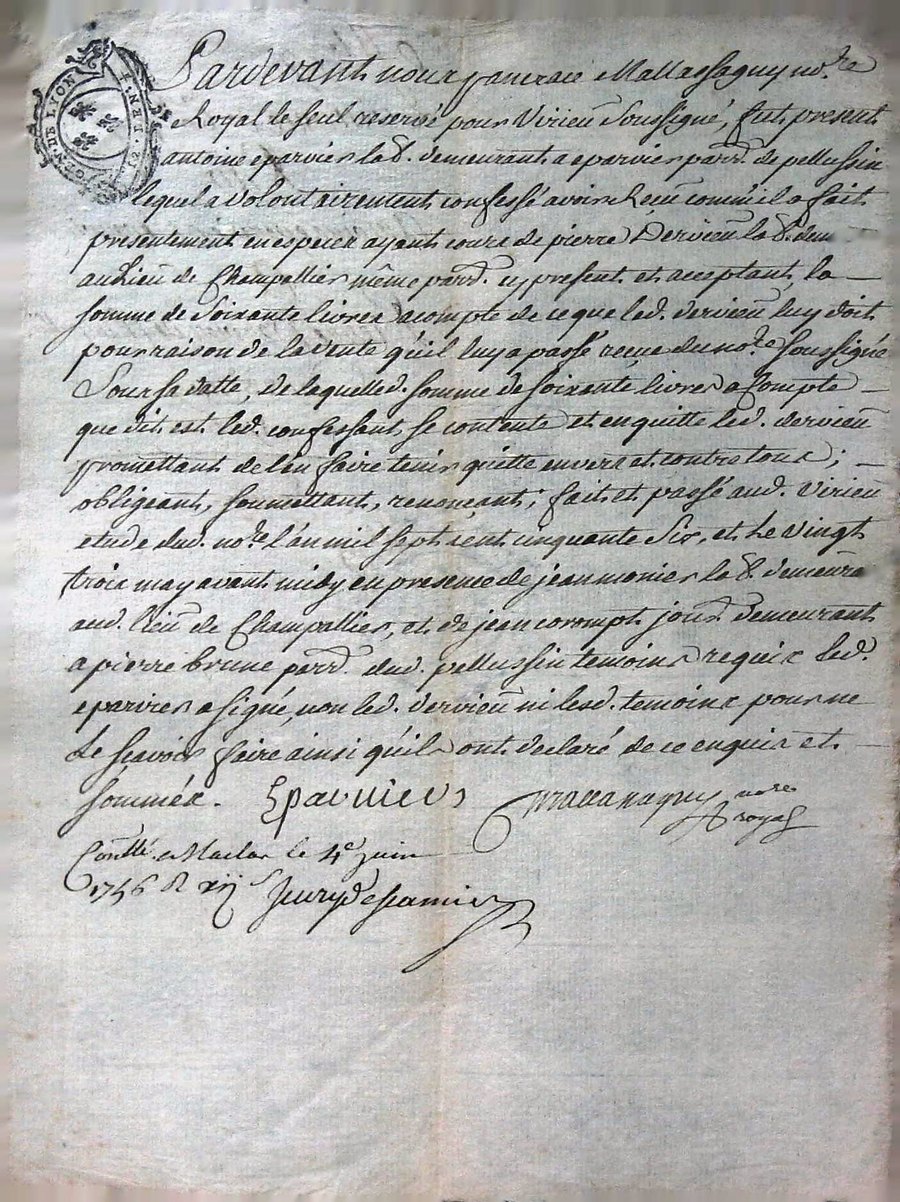 GEN. DE LYON
12. DEN. IE
Pardevant nous pancrace Mallassagny no.re
Royal le seul reservé pour Virieu soussigné, fut present
antoine eparvier lab.r demeurant a eparvier parr. de pellussin
lequel a volontairement confessé avoir Receu comm'il a fait
presentement en especes ayant cours de pierre Dervieu lab.r dem
au Lieu de Champallier même parr. cy present et aceptant, la
somme de Soixante livres acompte de ce que led. dervieu luy doit
pour raison de la vente qu'il luy a passé recue du no.re soussigné
Sous sa datte, de laquelle d. somme de soixante livres a Compte
que dit est led. confessant, se contente et en quitte led. dervieu
promettant de l'en faire tenir quitte envers et contre tous;
obligeant, soumettant, renonçant; fait et passé aud. virieu
etude dud. no.re l'an mil sept cent cinquante Six, et Le vingt
trois may avant midy en presence de jean monier lab.r demeura
aud. lieu de Champallier, et de jean corompt jour. demeurant
a pierre brune parr. dud. pellussin temoins requis led.
eparvier a signé, non led. dervieu ni lesd. temoins pour ne
Le scavoir faire ainsi qu'ils ont declaré de ce enquis et
sommés. Eparviers Mallassagny no.re
royal
Conllé. a Maclas le 4e juin
1756 R xij s